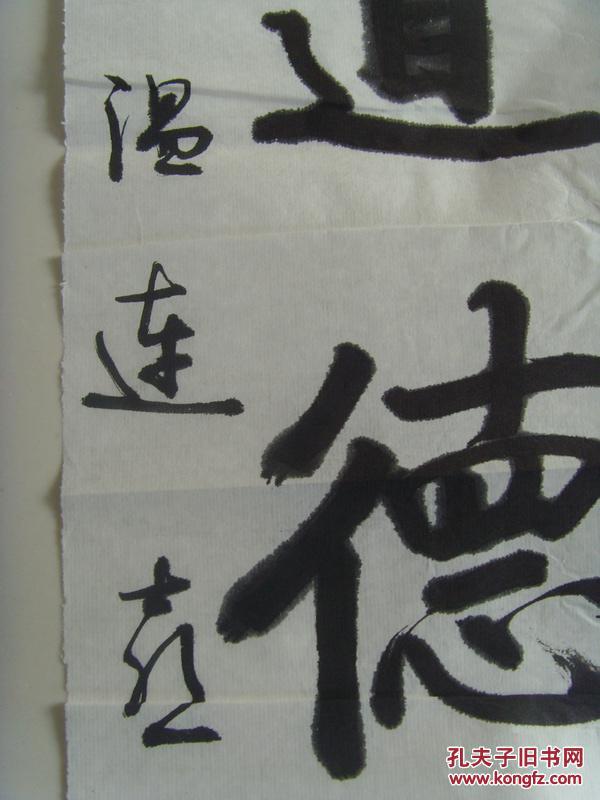 道德
温连喜
孔夫子旧书网
www.kongfz.com